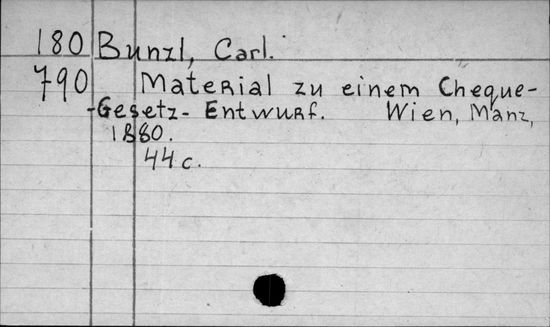 180 Bunzl, Carl.
790 Material zu einem Cheque-
-Gesetz-Entwurf. Wien, Manz,
1880.
44 c.